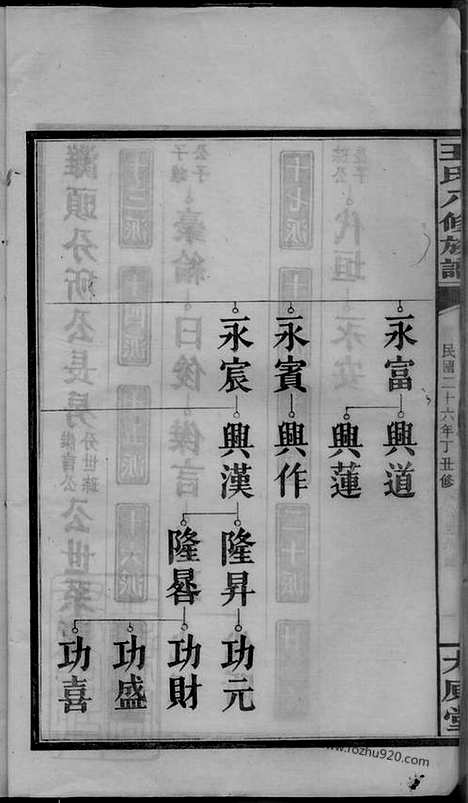 王氏八修族譜
民國二十六年丁丑修
太原堂
永富 興道
興蓮
永賓 興作
永宸 興漢
隆昇 功元
隆晷 功財
功盛
功喜
www.rozhu920.com